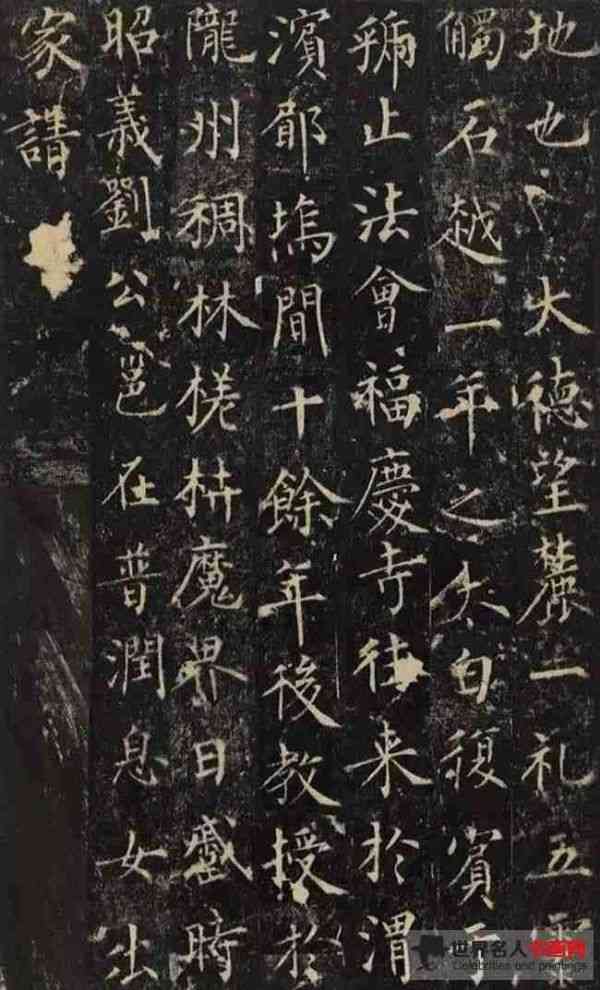 地也大德望麓一礼五
觸石越一年之太白復賓
號止法會福慶寺往来於渭
濱郿塢間十餘年後教授於
隴州稠林槎枿魔界日戲時
昭義劉公邕在普潤息女出
家請
世界名人书画网
Celebrities and paintings